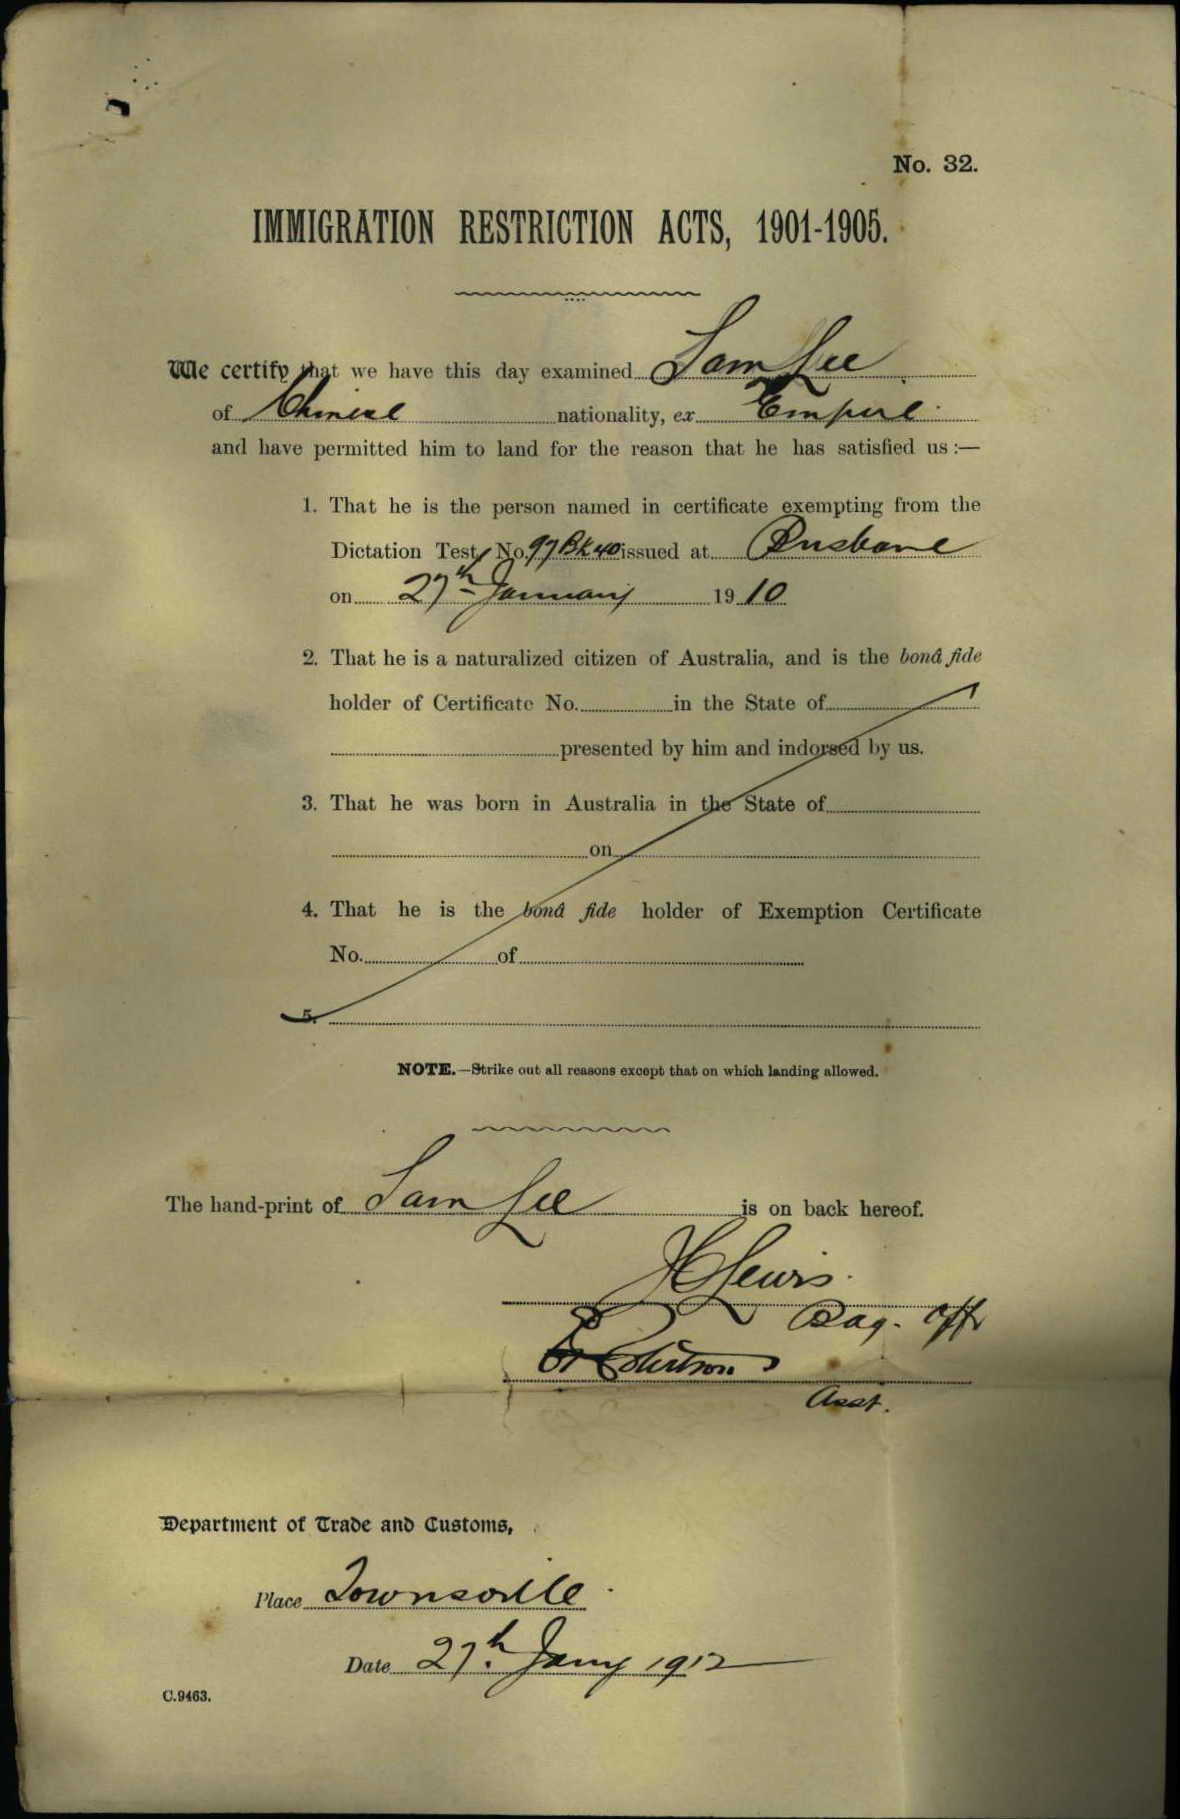 No. 32.
IMMIGRATION RESTRICTION ACTS, 1901-1905.
We certify that we have this day examined Sam Lee
of Chinese nationality, ex Empire
and have permitted him to land for the reason that he has satisfied us :—
1. That he is the person named in certificate exempting from the
Dictation Test, No. 97 Bk 40 issued at Brisbane
on 27th January 1910
2. That he is a naturalized citizen of Australia, and is the bonâ fide
holder of Certificate No. in the State of
presented by him and indorsed by us.
3. That he was born in Australia in the State of
on
4. That he is the bonâ fide holder of Exemption Certificate
No. of
5.
NOTE.—Strike out all reasons except that on which landing allowed.
The hand-print of Sam Lee is on back hereof.
Lewis
Robertson
Asst.
Department of Trade and Customs,
Place Townsville
Date 27th Jany 1912
C.9463.